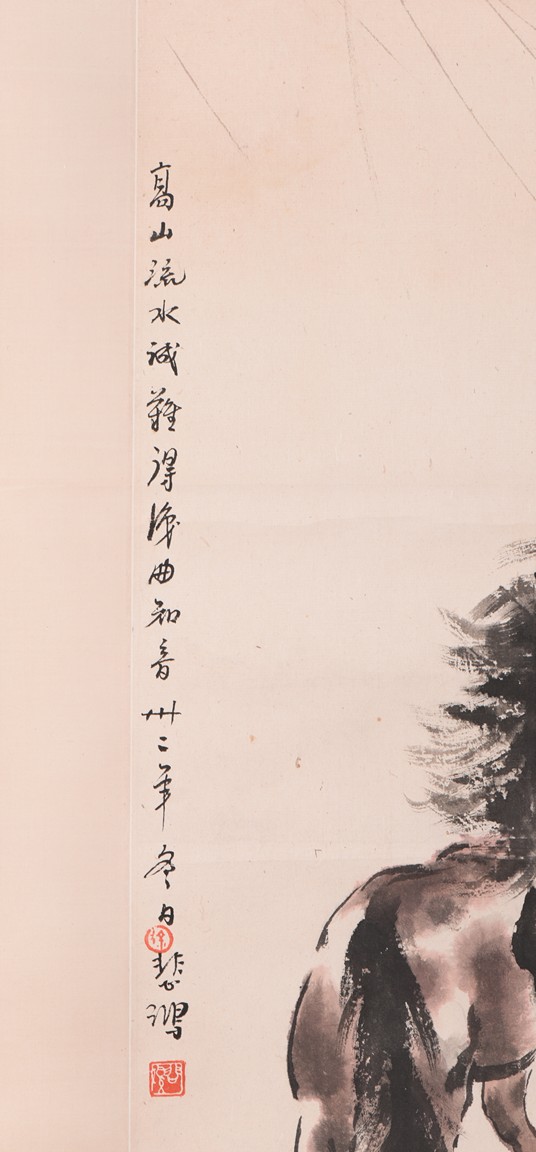 高山流水誠難得識曲知音卅二年冬月悲鴻
徐